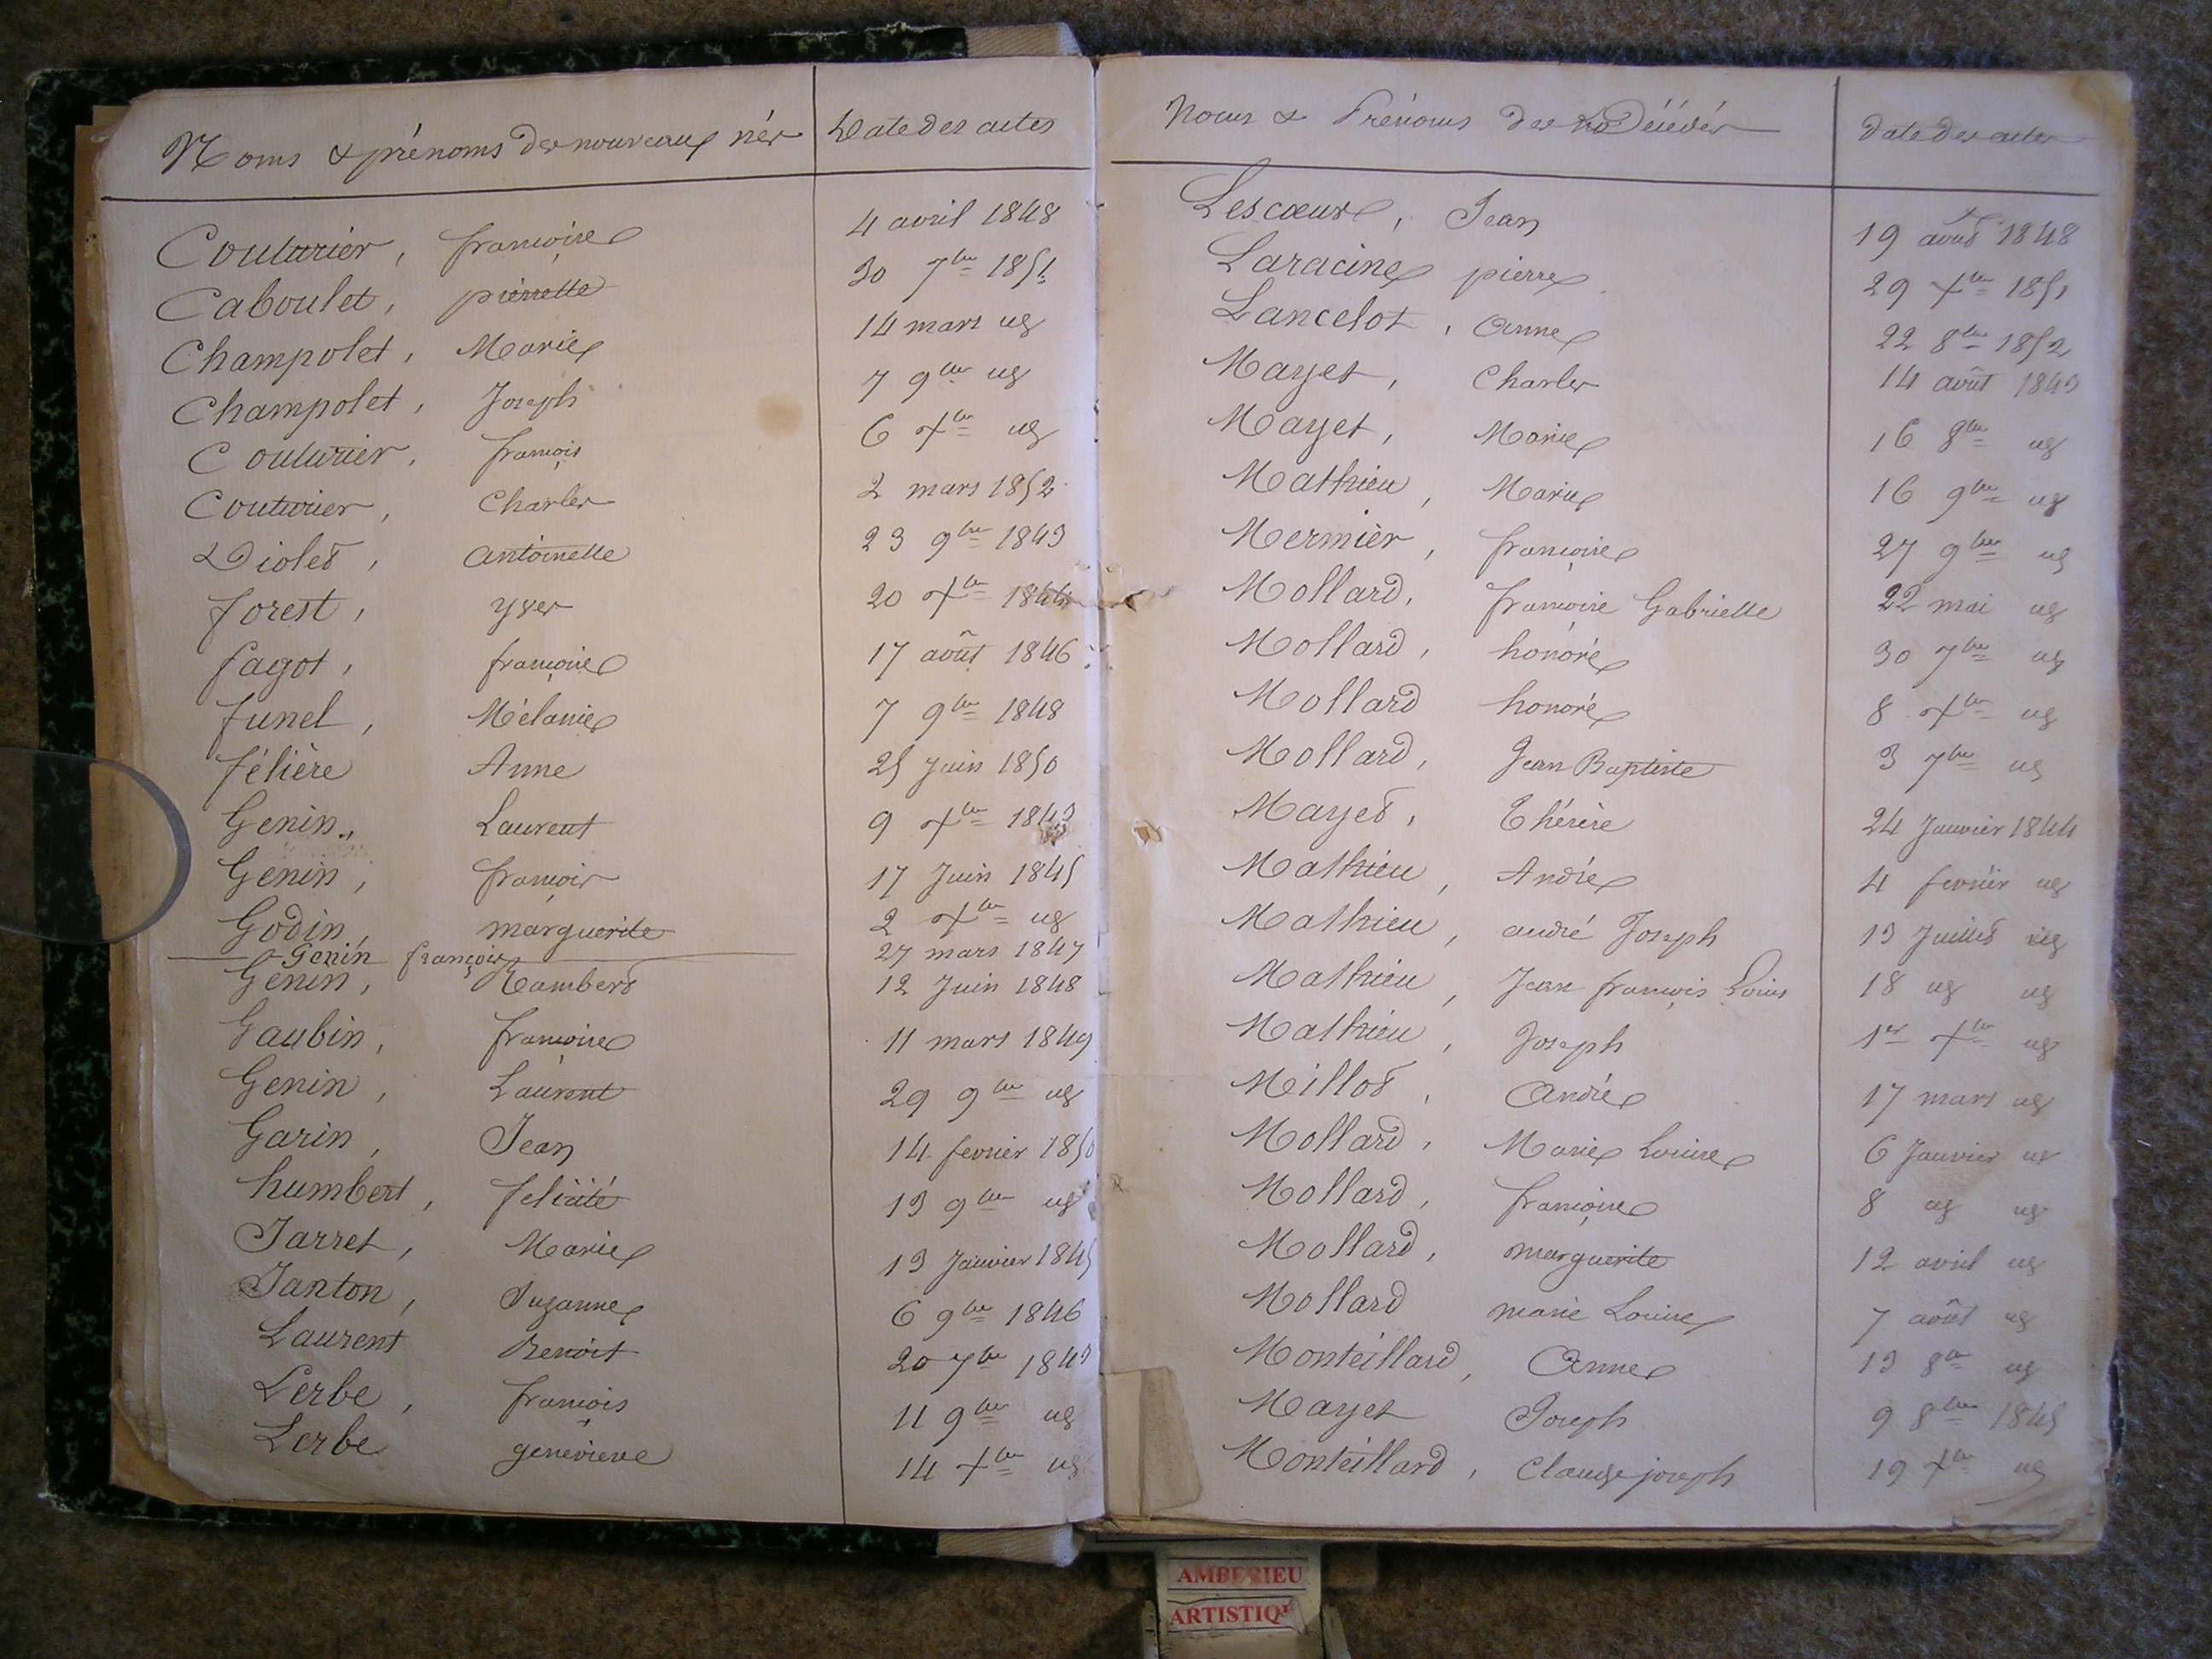 Noms & prénoms des nouveaux nés Date des actes
Couturier, françoise 4 avril 1848
Caboulet, pierrette 30 7bre 1851
Champolet, Marie 14 mars id
Champolet, Joseph 7 9bre id
Couturier, françois 6 Xbre id
Couturier, Charles 2 mars 1852
Diolet, antoinette 23 9bre 1843
forest, yves 20 Xbre 1844
fagot, françoise 17 août 1846
funel, Mélanie 7 9bre 1848
félière Anne 25 Juin 1850
Genin, Laurent 9 Xbre 1843
Genin, françois 17 Juin 1845
Godin, marguerite 2 Xbre id
Genin françois 27 mars 1847
Genin, Rambert 12 Juin 1848
Gaubin, françoise 11 mars 1849
Genin, Laurent 29 9bre id
Garin, Jean 14 fevrier 1850
humbert, felicité 13 9bre id
Jarret, Marie 13 Janvier 1845
Janton, Suzanne 6 9bre 1846
Laurent Benoit 20 7bre 1843
Lerbe, françois 11 9bre id
Lerbe genevieve 14 Xbre id
Noms & Prénoms des Décédés Date des actes
Lescœur, Jean 19 août 1848
Laracine pierre 29 Xbre 1851
Lancelot, Anne 22 8bre 1852
Mayet, Charles 14 août 1843
Mayet, Marie 16 8bre id
Mathieu, Marie 16 9bre id
Mermier, françoise 27 9bre id
Mollard, françoise Gabrielle 22 mai id
Mollard, honoré 30 7bre id
Mollard honoré 8 Xbre id
Mollard, Jean Baptiste 3 7bre id
Mayet, Thérèse 24 Janvier 1844
Mathieu, André 4 fevrier id
Mathieu, andré Joseph 13 Juillet id
Mathieu, Jean françois Louis 18 id id
Mathieu, Joseph 1er Xbre id
Millot, André 17 mars id
Mollard, Marie Louise 6 Janvier id
Mollard, françoise 8 id id
Mollard, marguerite 12 avril id
Mollard marie Louise 7 août id
Monteillard, Anne 13 8bre id
Mayet Joseph 9 8bre 1845
Monteillard, Claude joseph 19 Xbre id
AMBERIEU
ARTISTIQ